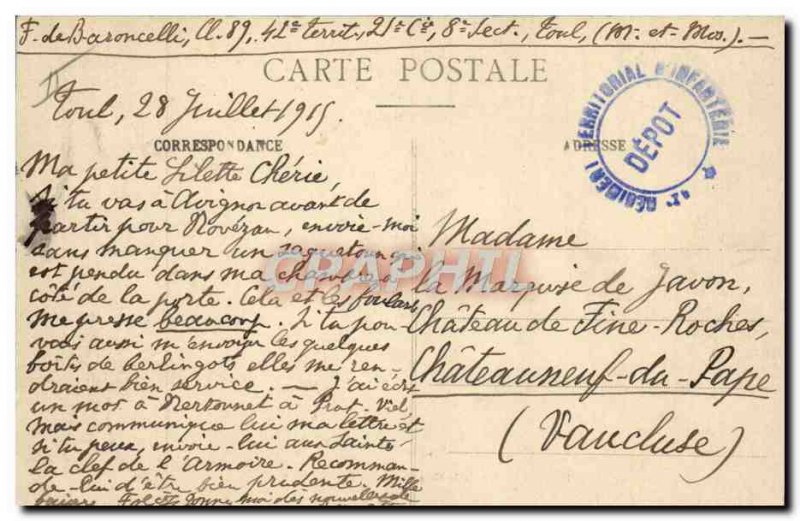 F. de Baroncelli, Cl. 89, 42e Territ, 21e Cie, 8e Sect., Toul, (M. et. Mos.). —
CARTE POSTALE
Toul, 28 Juillet 1915
CORRESPONDANCE
Ma petite Chérie,
Si tu vas à Avignon avant de
partir pour Novézan, envoie-moi
sans manquer un saquetoun qui
est pendu dans ma chambre
côté de la porte. Cela et les foulards
me presse beaucoup. Si tu pou-
vais aussi m'envoyer les quelques
boîtes de berlingots elles me ren-
draient bien service. — J'ai écrit
un mot à à
mais communique lui ma lettre et
si tu peux, envoie-lui aux Saintes
la clef de l'Armoire. Recomman-
de-lui d'être bien prudente. Mille
moi des nouvelles de
ADRESSE
Madame
la Marquise de Javon,
Château de Fine-Roches,
Châteauneuf-du-Pape
(Vaucluse)
42e REGIMENT TERRITORIAL D'INFANTERIE
DÉPOT
CRAPHTL